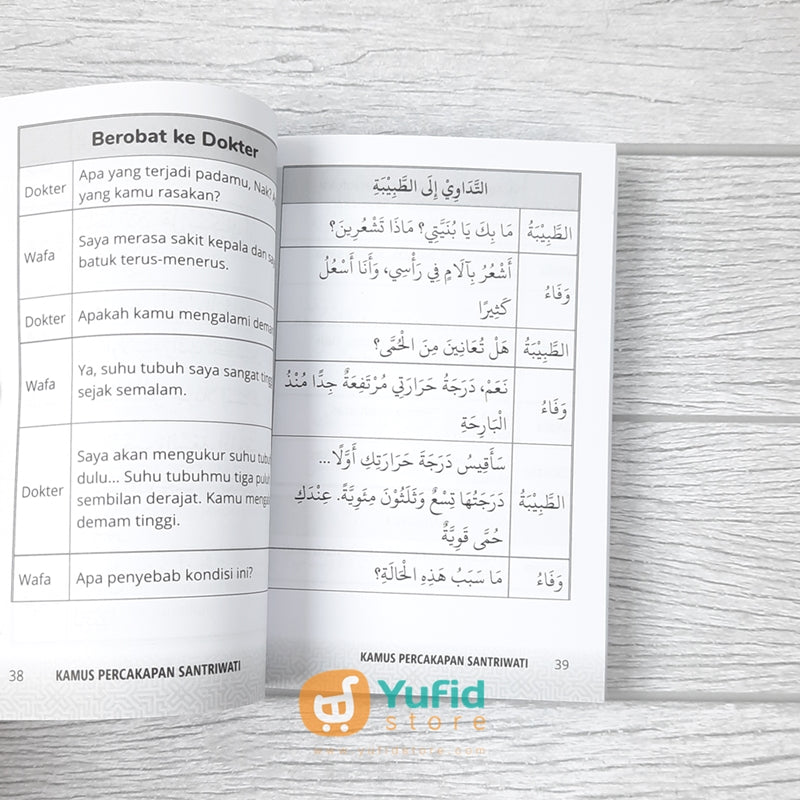 Berobat ke Dokter
Dokter
Apa yang terjadi padamu, Nak?
yang kamu rasakan?
Wafa
Saya merasa sakit kepala dan
batuk terus-menerus.
Dokter
Apakah kamu mengalami
Wafa
Ya, suhu tubuh saya sangat
sejak semalam.
Dokter
Saya akan mengukur suhu
dulu... Suhu tubuhmu tiga
sembilan derajat. Kamu
demam tinggi.
Wafa
Apa penyebab kondisi ini?
38 KAMUS PERCAKAPAN SANTRIWATI
التَّدَاوِيْ إِلَى الطَّبِيْبَةِ
الطَّبِيْبَةُ
مَا بِكَ يَا بُنَيَّتِي؟ مَاذَا تَشْعُرِينَ؟
وَفَاءُ
أَشْعُرُ بِآلَامٍ فِي رَأْسِي، وَأَنَا أَسْعُلُ
كَثِيرًا
الطَّبِيْبَةُ
هَلْ تُعَانِينَ مِنَ الْحُمَّى؟
وَفَاءُ
نَعَمْ، دَرَجَةُ حَرَارَتِي مُرْتَفِعَةٌ جِدًّا مُنْذُ
الْبَارِحَةِ
الطَّبِيْبَةُ
سَأَقِيسُ دَرَجَةَ حَرَارَتِكِ أَوَّلًا...
دَرَجَتُهَا تِسْعٌ وَثَلَثُوْنَ مِئَوِيَّةً. عِنْدَكِ
حُمَّى قَوِيَّةٌ
وَفَاءُ
مَا سَبَبُ هَذِهِ الْحَالَةِ؟
KAMUS PERCAKAPAN SANTRIWATI 39
Yufid
store
www.yufidstore.com